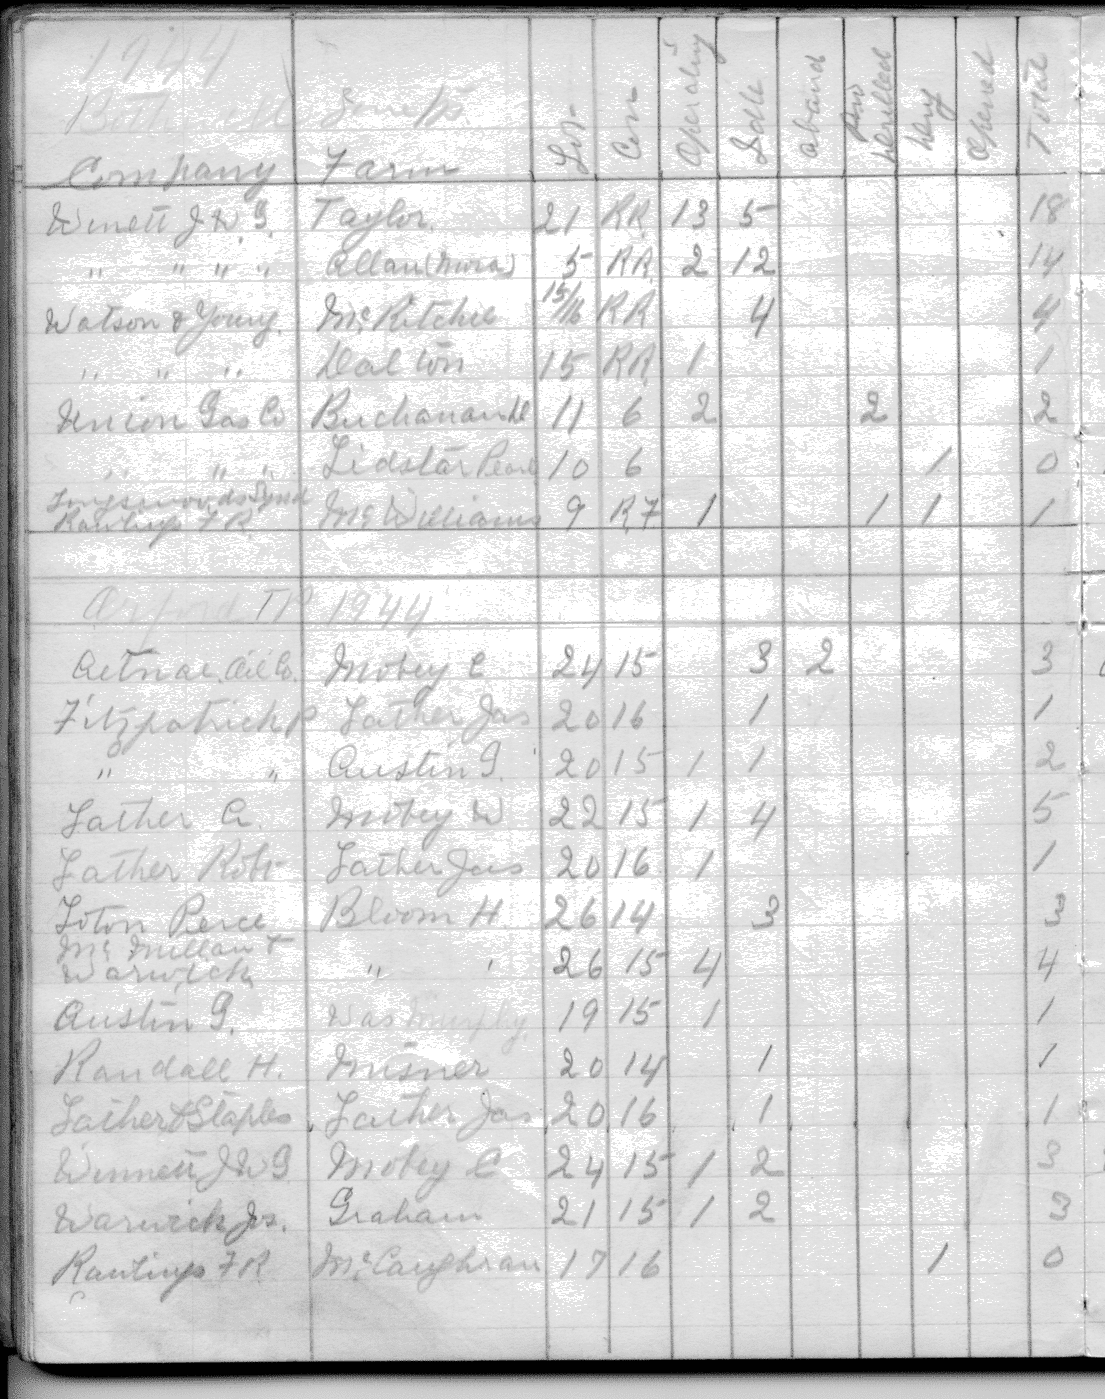 1944
Company Farm Lot Con Operating Idle aband New Drilled Dry Opened Total
Winett J.W.G. Taylor. 21 RR. 13 5 18
" " " " Allan (Mrs a) 5 RR 2 12 14
Watson & Young. Mc Ritchie 15/16 RR 4 4
" " " Dalton 15 RR 1 1
Union Gas Co Buchanan 11 6 2 2 2
" " " Lidstar Pearl 10 6 1 0
Longswoods Synd
Rawlings F R. Mc Williams 9 R7 1 1 1 1
Orford TP 1944
Aetnae. Oil Co. Mobey C 24 15 3 2 3
Fitzpatrick P Lather Jas 20 16 1 1
" " Austin G. 20 15 1 1 2
Lather A. Mobey W 22 15 1 4 5
Lather Robt Lather Jas 20 16 1 1
Loton Perce Bloom H. 26 14 3 3
Mc Millan +
Warwick " ' 26 15 4 4
Austin G. Was Murphy. 19 15 1 1
Randall H. Misner 20 14 1 1
Lather & Staples Lather Jas 20 16 1 1
Winnett J W G Mobey C 24 15 1 2 3
Warwick Js. Graham 21 15 1 2 3
Rawlings F R McCaughran 17 16 1 0